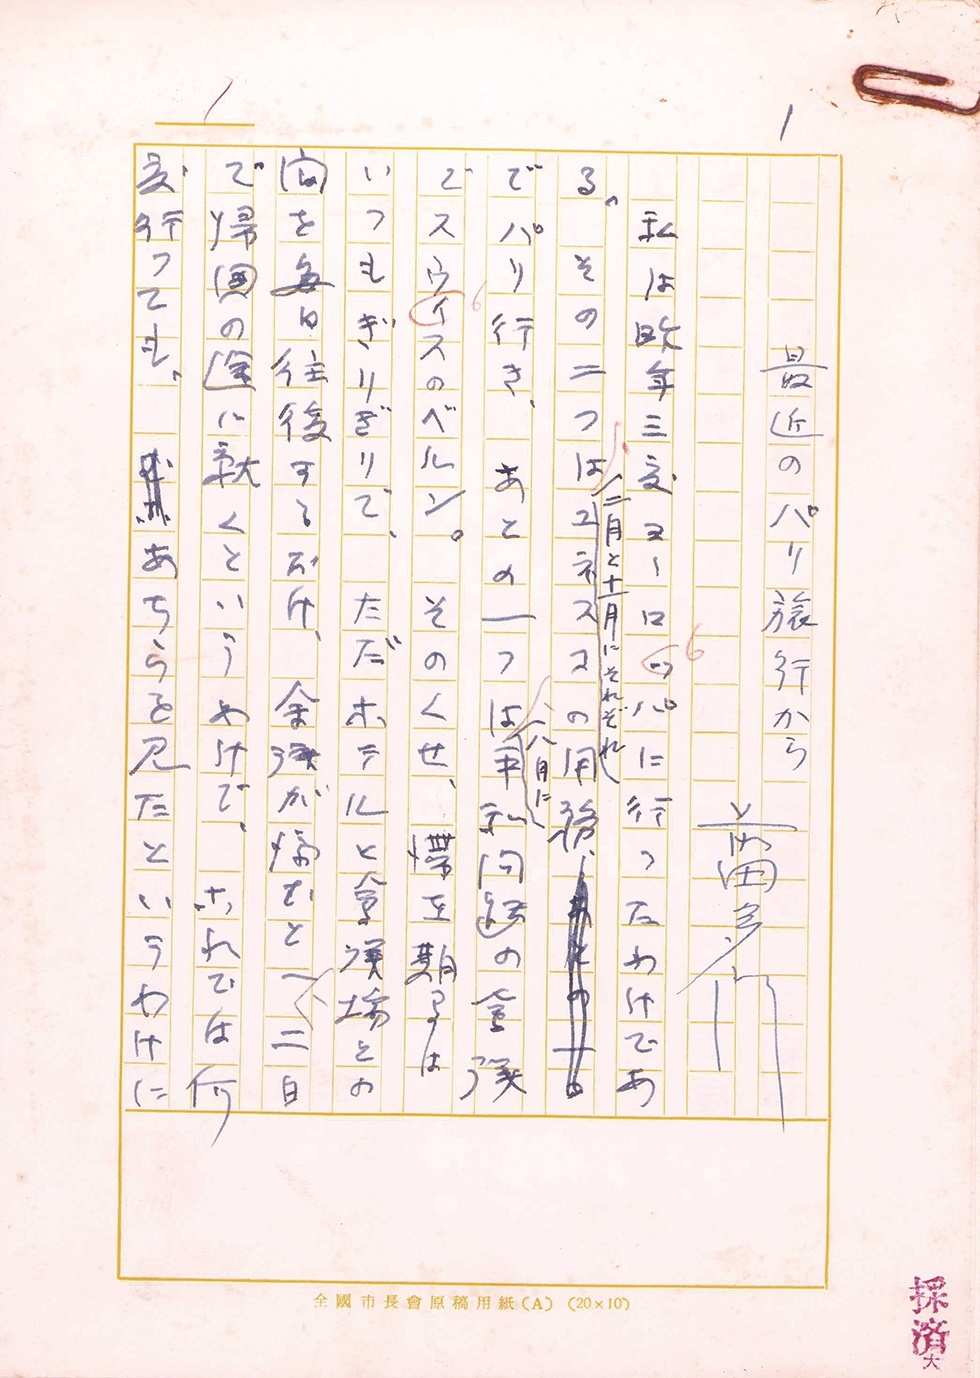 1
最近のパリ旅行から
前田多門
私は昨年三度ヨーロッパに行ったわけであ
る。その二つは(二月と十一月にそれぞれ)ユネスコの用務
でパリ行き、あとの一つは(八月に)軍 問題の会議
でスウィスのベルン。そのくせ、滞在期間は
いつもぎりぎりで、ただホテルと会議場との
間を毎日往復するだけ、会議が済むと一、二日
で帰国の途に就くというわけで、これでは何
度行っても、あちらを見たというわけに
全國市長會原稿用紙(A) (20×10)
採済
大